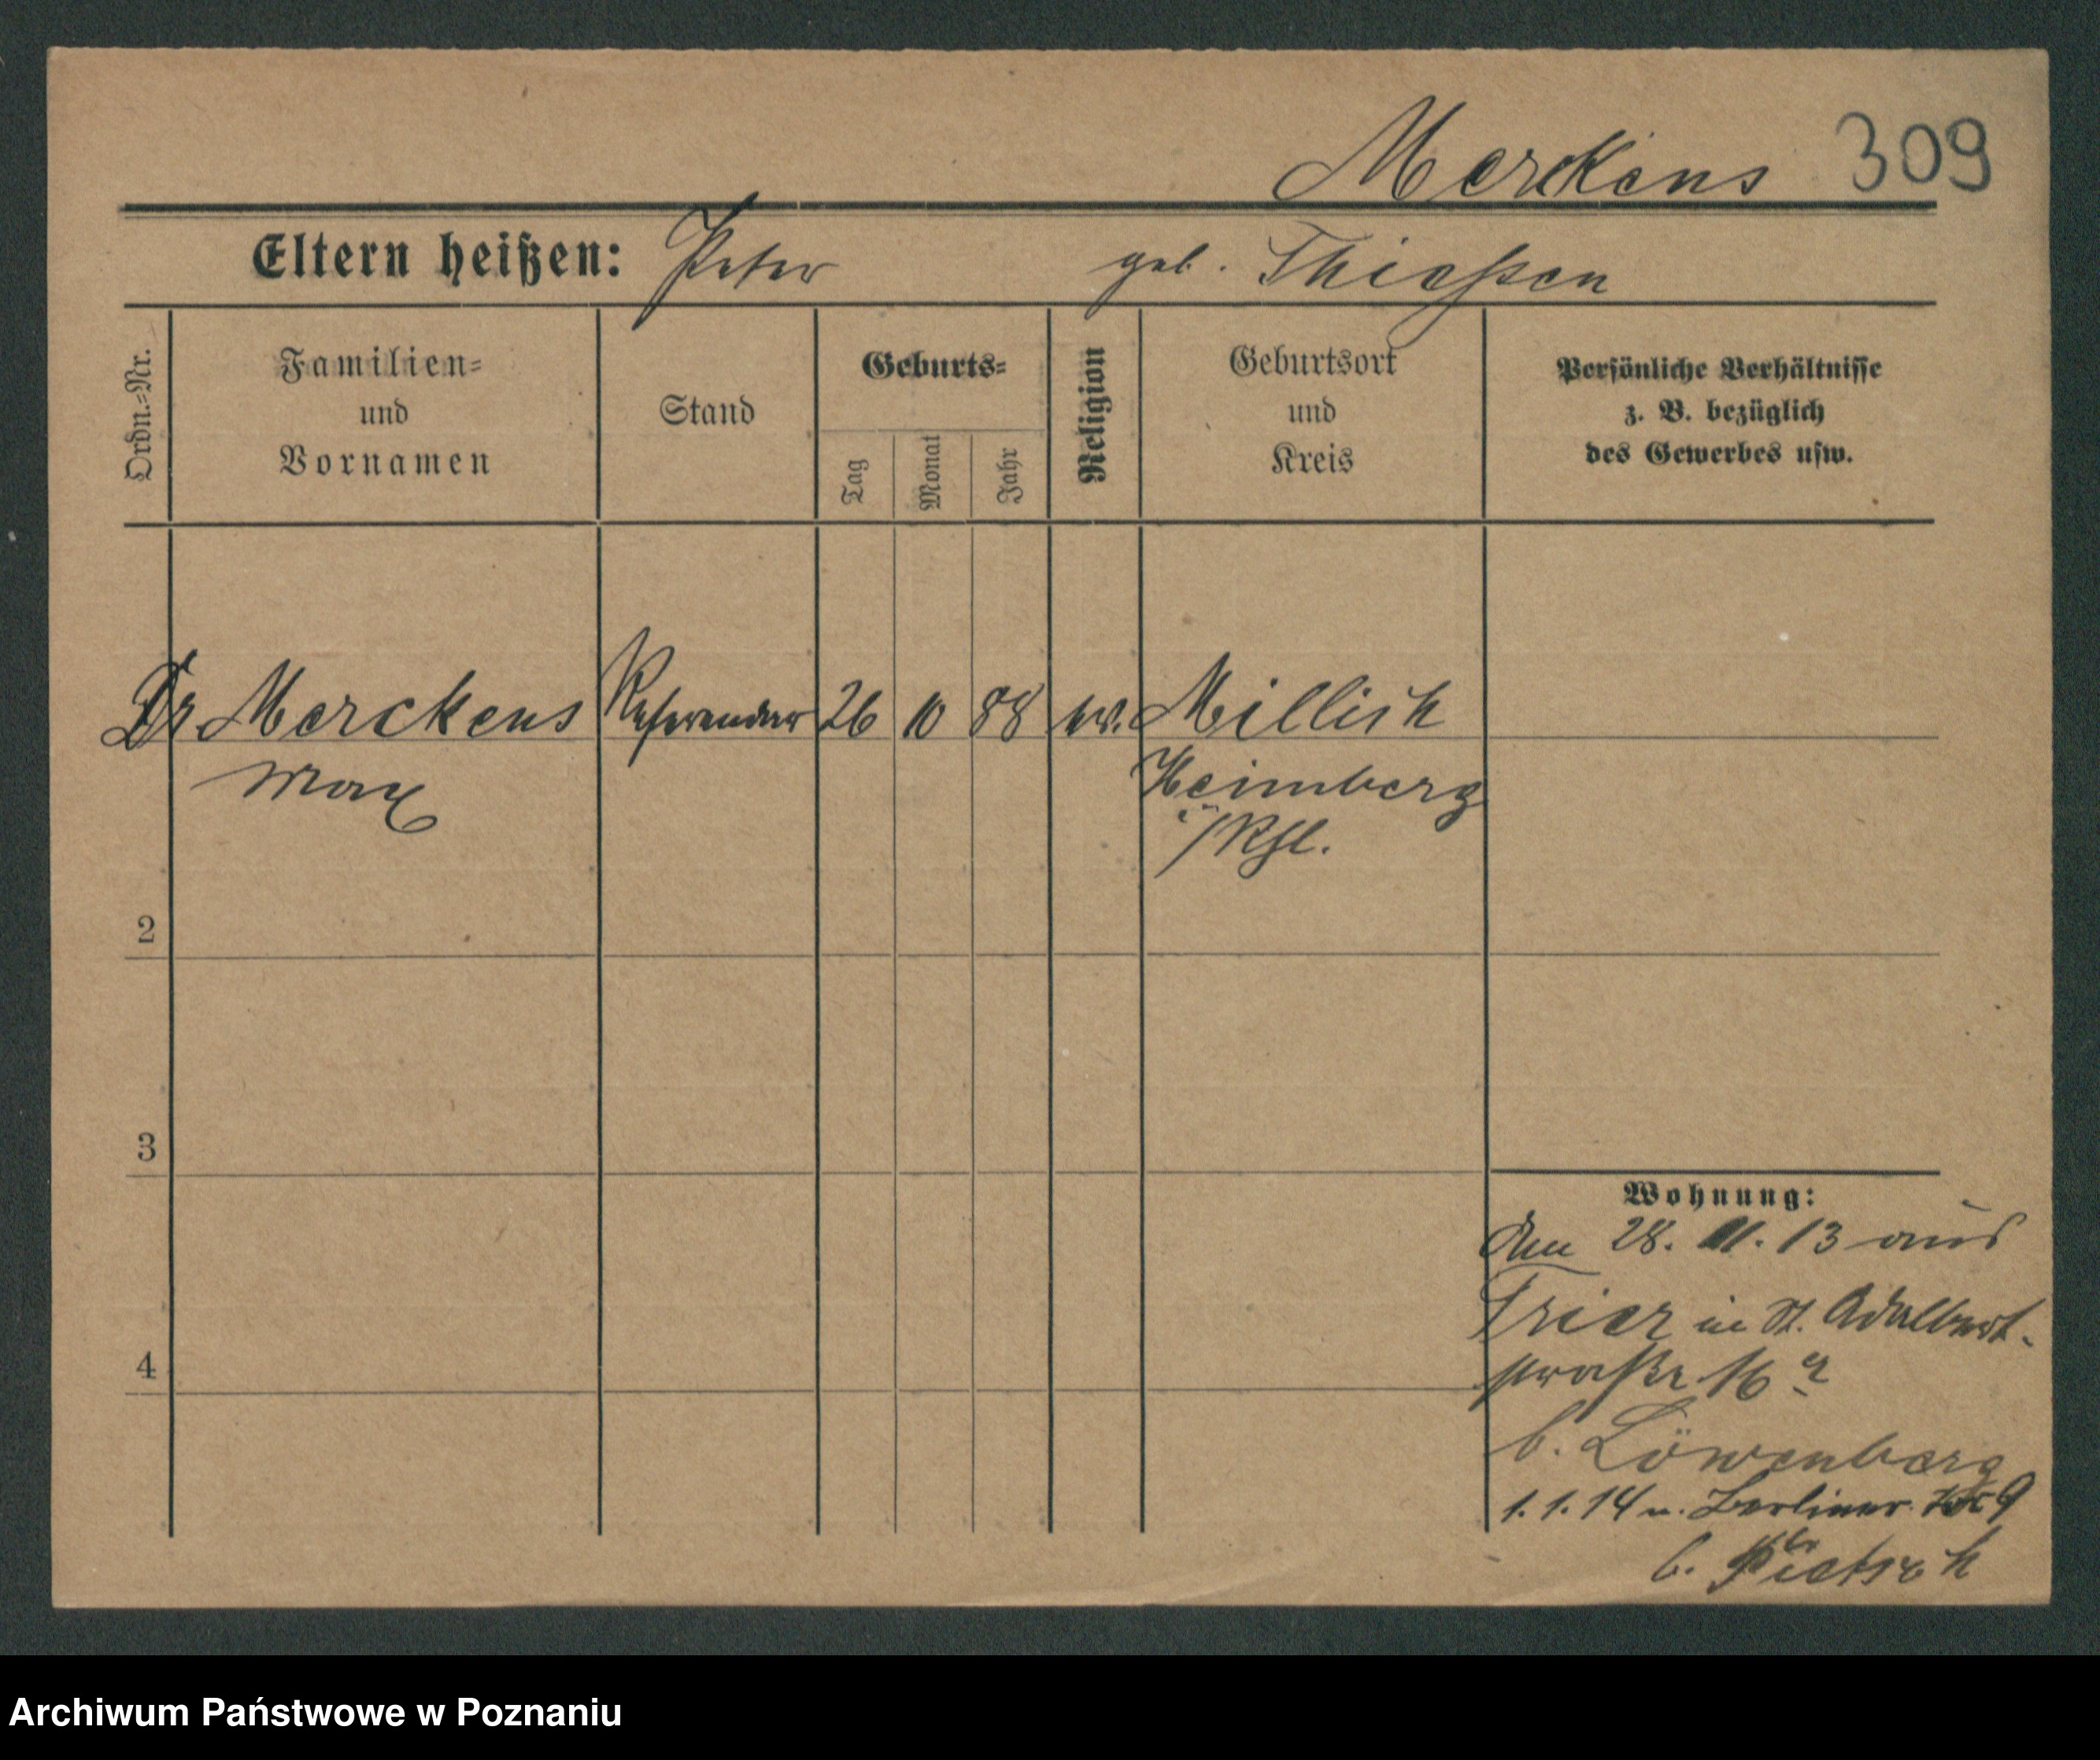 Merckens 309
Eltern heißen: Peter geb. Thießen
Ordn.=Nr.
Familien=
und
Vornamen
Stand
Geburts=
Tag
Monat
Jahr
Religion
Geburtsort
und
Kreis
Persönliche Verhältnisse
z. B. bezüglich
des Gewerbes usw.
Dr Merckens Referendar 26 10 88 Millich
Max Heimberg
i/Rhl.
2
3
4
Wohnung:
den 28. 11. 13 aus
Trier in St. Adalbert-
straße 16
b. Löwenberg
1. 1. 14 n. Berliner 9
b. Pietsch
Archiwum Państwowe w Poznaniu